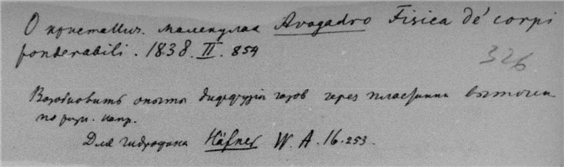 О кристаллич. малекулах Avogadro Fisica de' corpi
ponderabili. 1838. II. 854
326
Возобновить опыты диффузіи газов через пластинки выточен.
по разн. напр.
Для гидродина Häfner W. A. 16. 253.